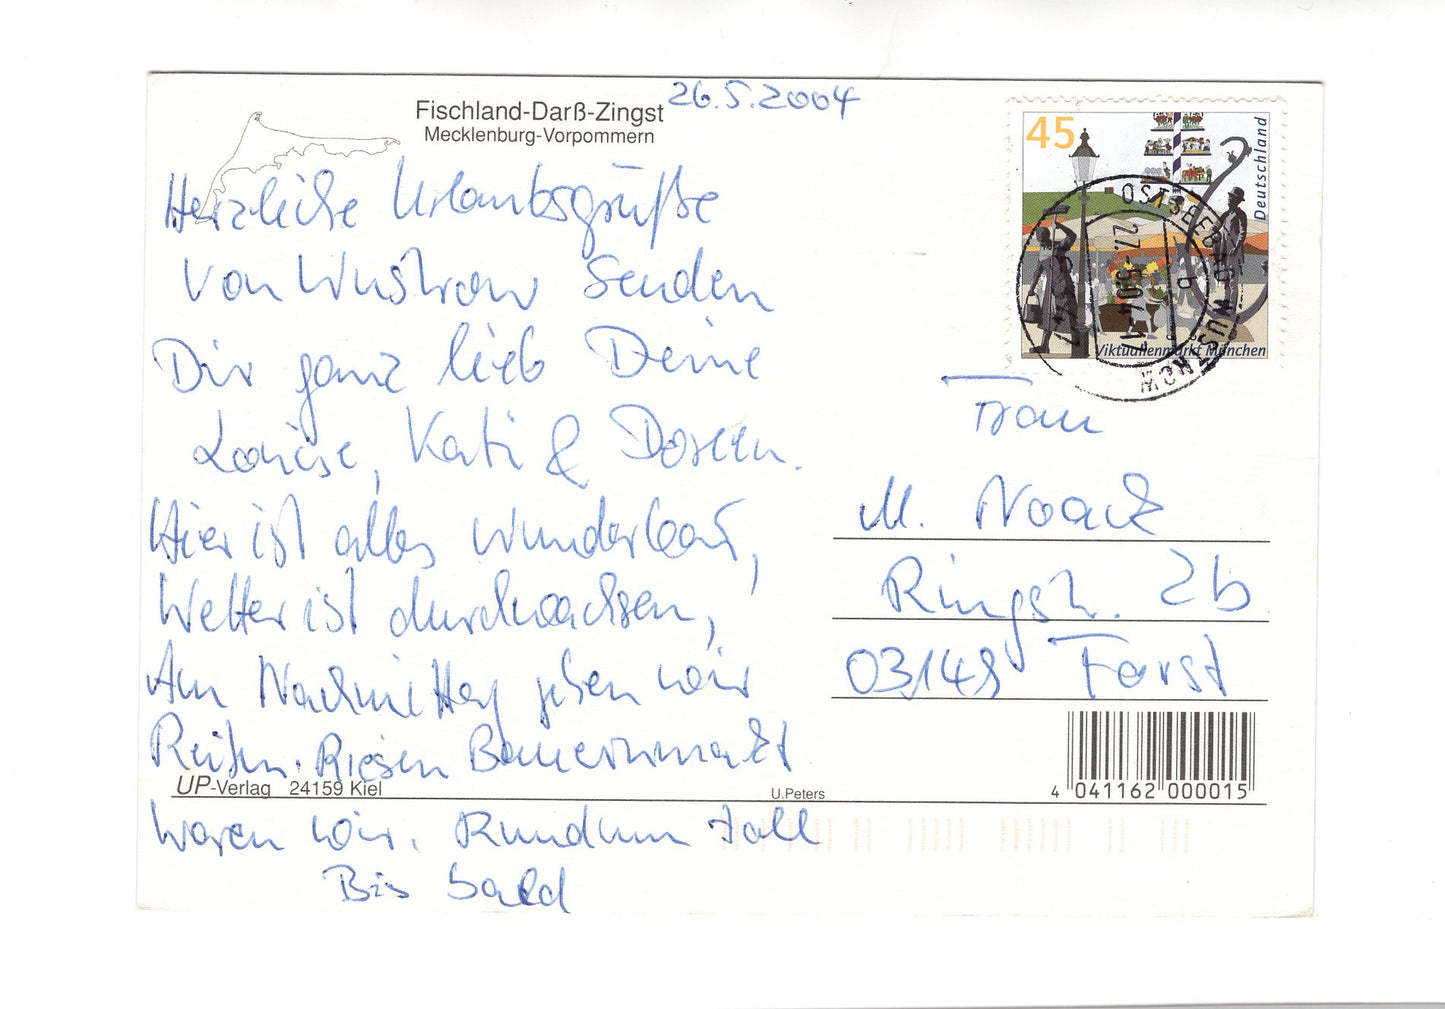 Fischland-Darß-Zingst
Mecklenburg-Vorpommern
26.5.2004
Herzliche Urlaubsgrüße
von Wustrow senden
Dir ganz lieb Deine
Louise, Kati & Doreen.
Hier ist alles wunderbar,
Wetter ist durchwachsen,
Am Nachmittag gehen wir
Reiten. Riesen Bauernmarkt
waren wir. Rundum toll
Bis bald
UP-Verlag 24159 Kiel
U.Peters
45
Deutschland
Viktualienmarkt München
OSTSEEBAD WUSTROW
27.-5.04-17
b
Frau
M. Noack
Ringstr. 2b
03149 Forst
4 041162 000015